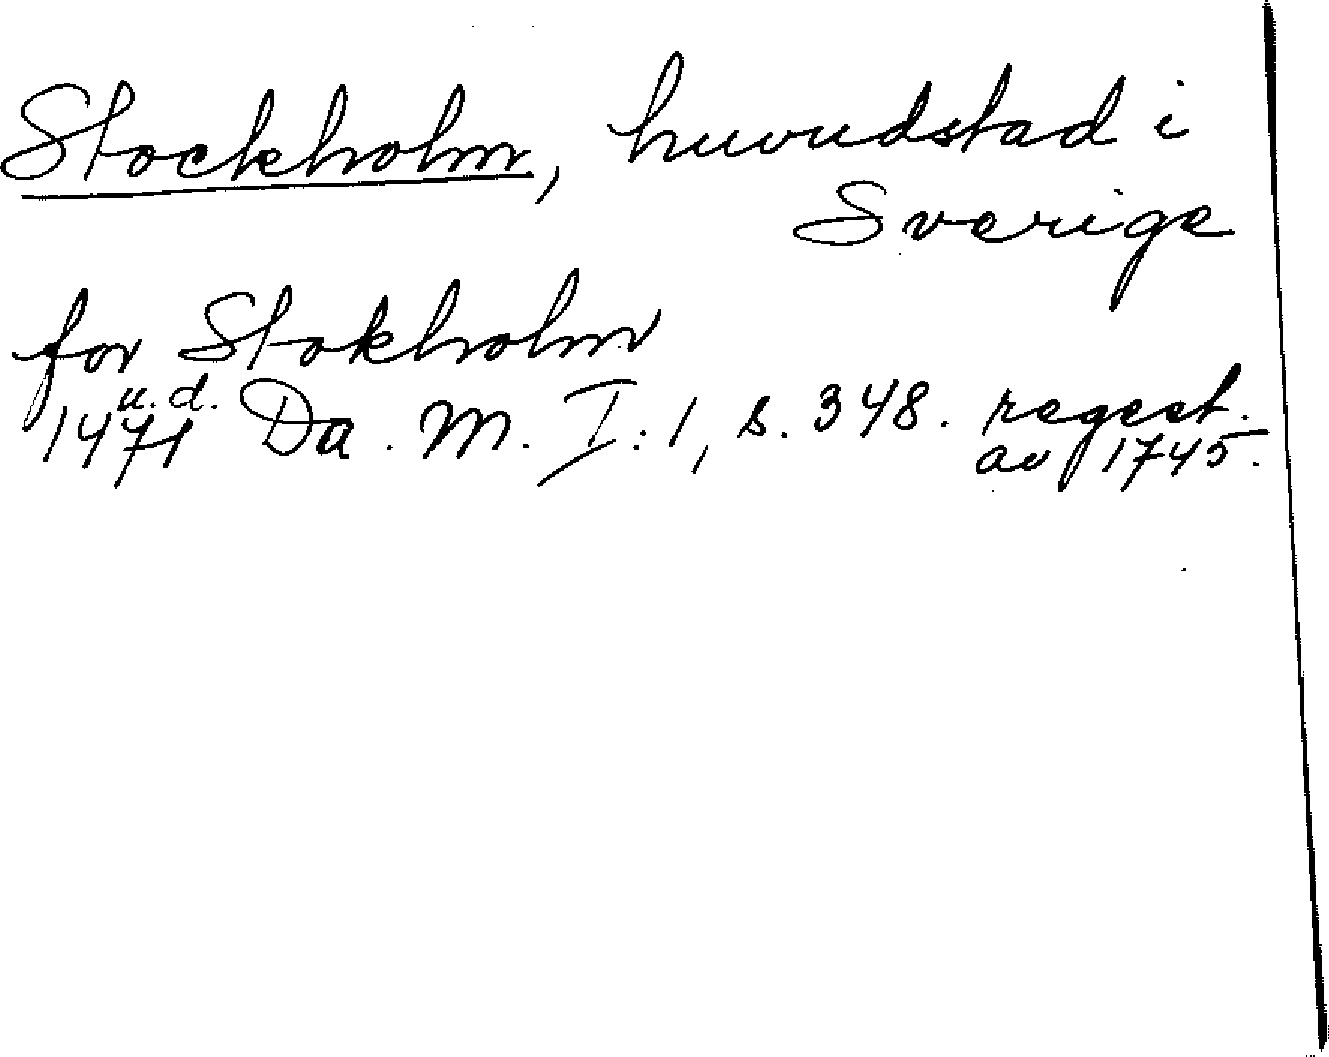 Stockholm, huvudstad i
Sverige
for Stokholm
u.d.
1471 Da. M. I:1, s. 348. regest.
av 1745.